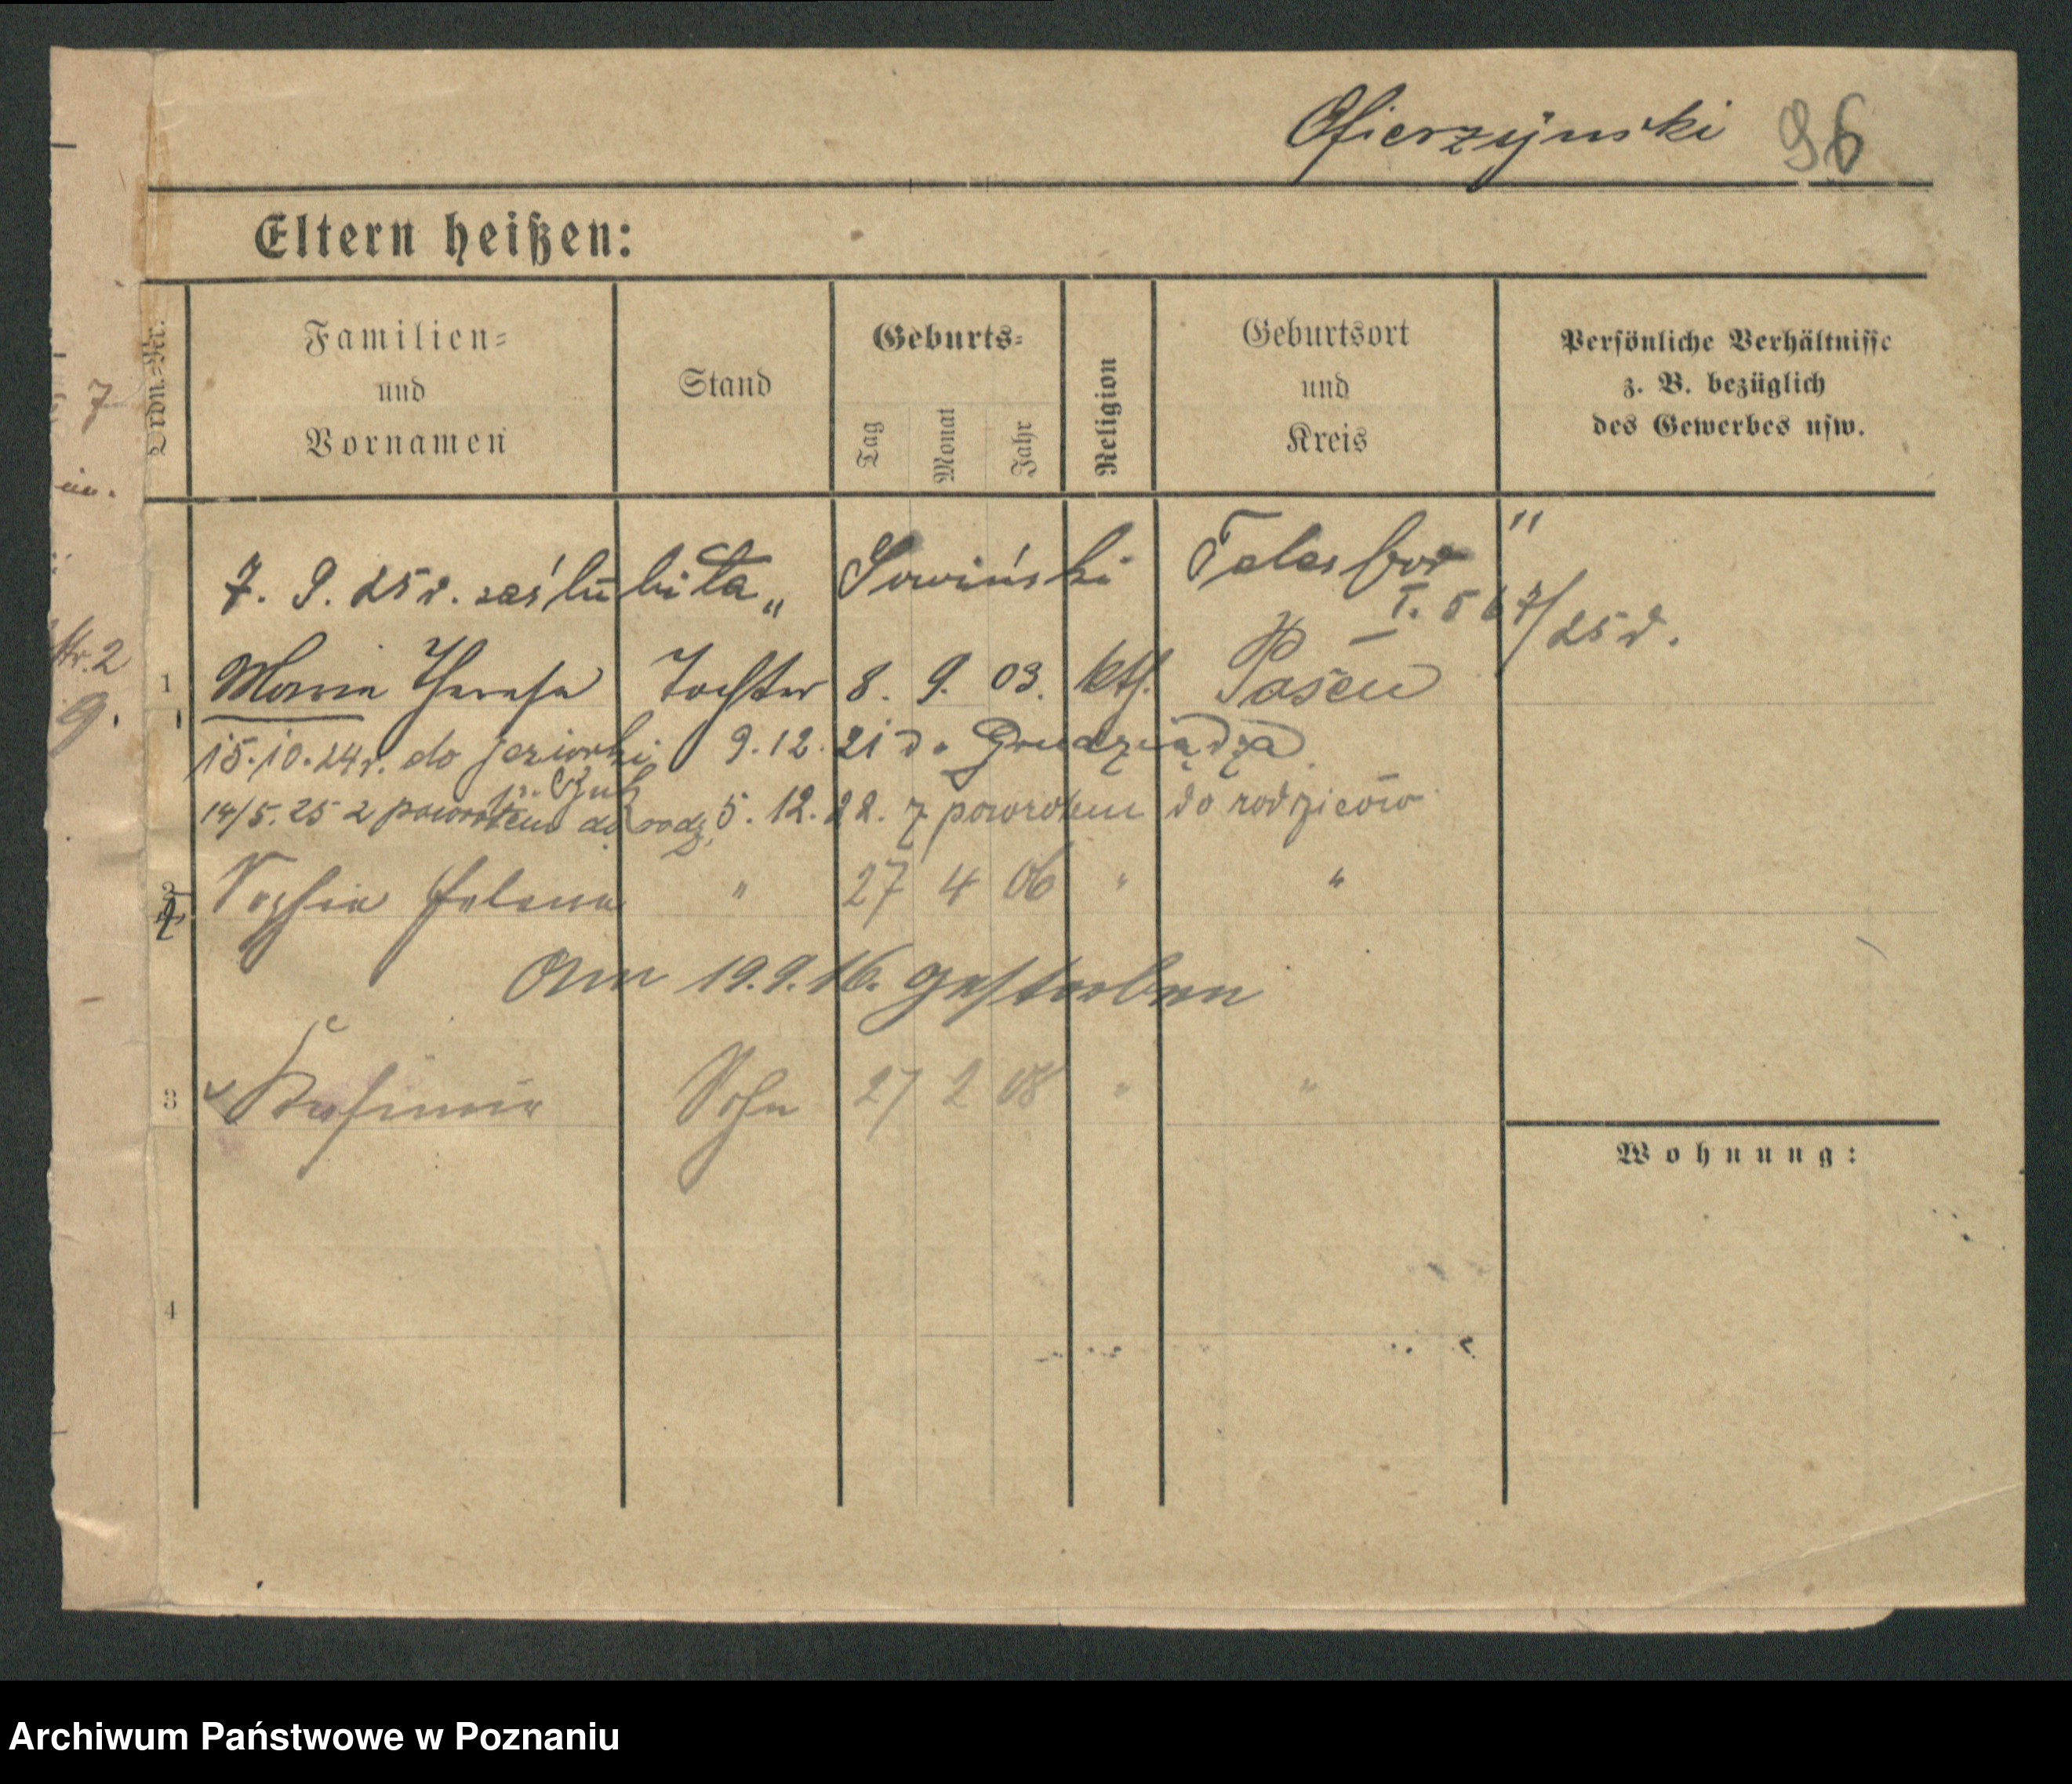 Ofierzyński 96
Eltern heißen:
Ordn.-Nr.
Familien-
und
Vornamen
Stand
Geburts-
Tag
Monat
Jahr
Religion
Geburtsort
und
Kreis
Persönliche Verhältnisse
z. B. bezüglich
des Gewerbes usw.
7. 9. 25 r. zaślubiła „Sowiński Telesfor"
I. 567/25 r.
1 Maria Theresa Tochter 8. 9. 03. kth. Posen
15.10.24 r. do Jeziorki 9.12.21 do Grudziądza
14/5.25 z powrotem do rodz. 5.12.22. z powrotem do rodziców
2 Sophia Helena " 27 4 06 " "
Am 19.9.16. gestorben
3 Kasimir Sohn 27 2 08 " "
Wohnung:
4
7
Nr. 2
9.
Archiwum Państwowe w Poznaniu